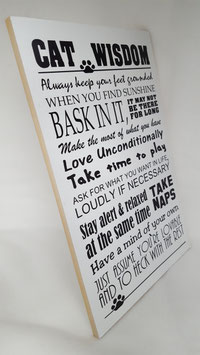 CAT WISDOM
Always keep your feet grounded
WHEN YOU FIND SUNSHINE
BASK IN IT, IT MAY NOT
BE THERE
FOR LONG
Make the most of what you have
Love Unconditionally
Take time to play
ASK FOR WHAT YOU WANT IN LIFE,
LOUDLY IF NECESSARY
Stay alert & relaxed
at the same time
TAKE
NAPS
Have a mind of your own
JUST ASSUME YOU'RE LOVABLE
AND TO HECK WITH THE REST